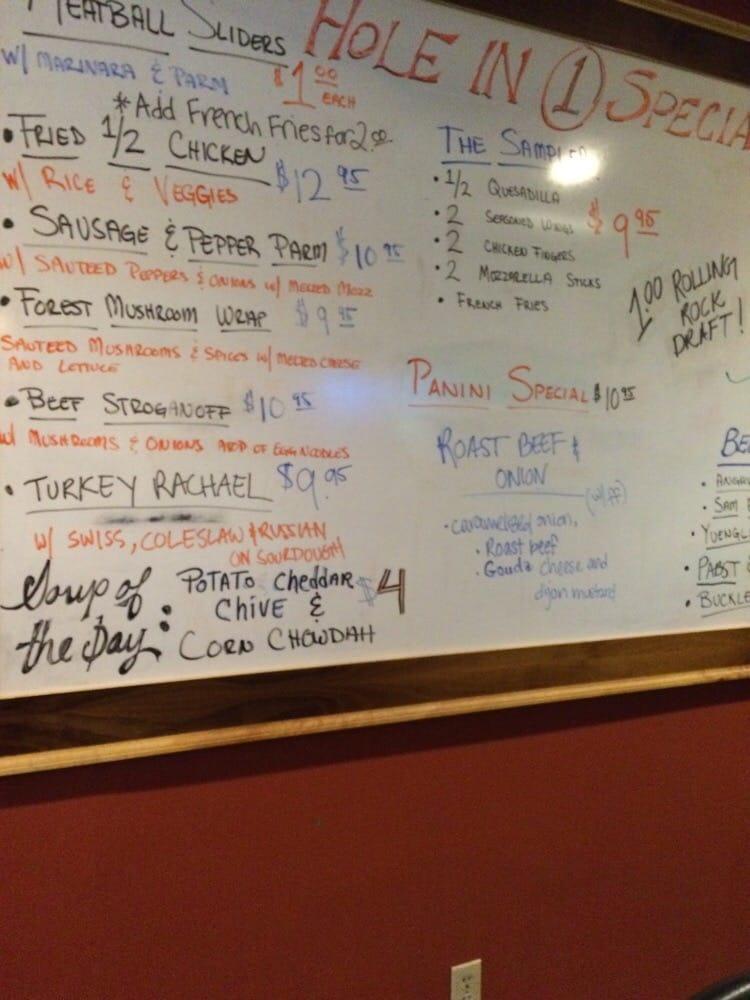 MEATBALL SLIDERS
W/ MARINARA & PARM $1.00 EACH
*Add French Fries for 2.00
• FRIED 1/2 CHICKEN $12.95
W/ RICE & VEGGIES
• SAUSAGE & PEPPER PARM $10.95
W/ SAUTEED PEPPERS & ONIONS W/ MELTED MOZZ
• FOREST MUSHROOM WRAP $9.95
SAUTEED MUSHROOMS & SPICES W/ MELTED CHEESE
AND LETTUCE
• BEEF STROGANOFF $10.95
W/ MUSHROOMS & ONIONS OF EGG NOODLES
• TURKEY RACHAEL $9.95
W/ SWISS, COLESLAW & RUSSIAN
ON SOURDOUGH
Soup of the Day: POTATO Cheddar
CHIVE &
CORN CHOWDAH $4
HOLE IN 1 SPECIA
THE SAMPLER
• 1/2 QUESADILLA
• 2 SEASONED WINGS $9.95
• 2 CHICKEN FINGERS
• 2 MOZZARELLA STICKS
• FRENCH FRIES
1.00 ROLLING
ROCK
DRAFT!
PANINI SPECIAL $10.95
ROAST BEEF &
ONION
(w/ff)
• caramelized onion,
• Roast beef
• Gouda cheese and
dijon mustard
BE
• ANGRY
• SAM
• YUENGL
• PABST
• BUCKLE